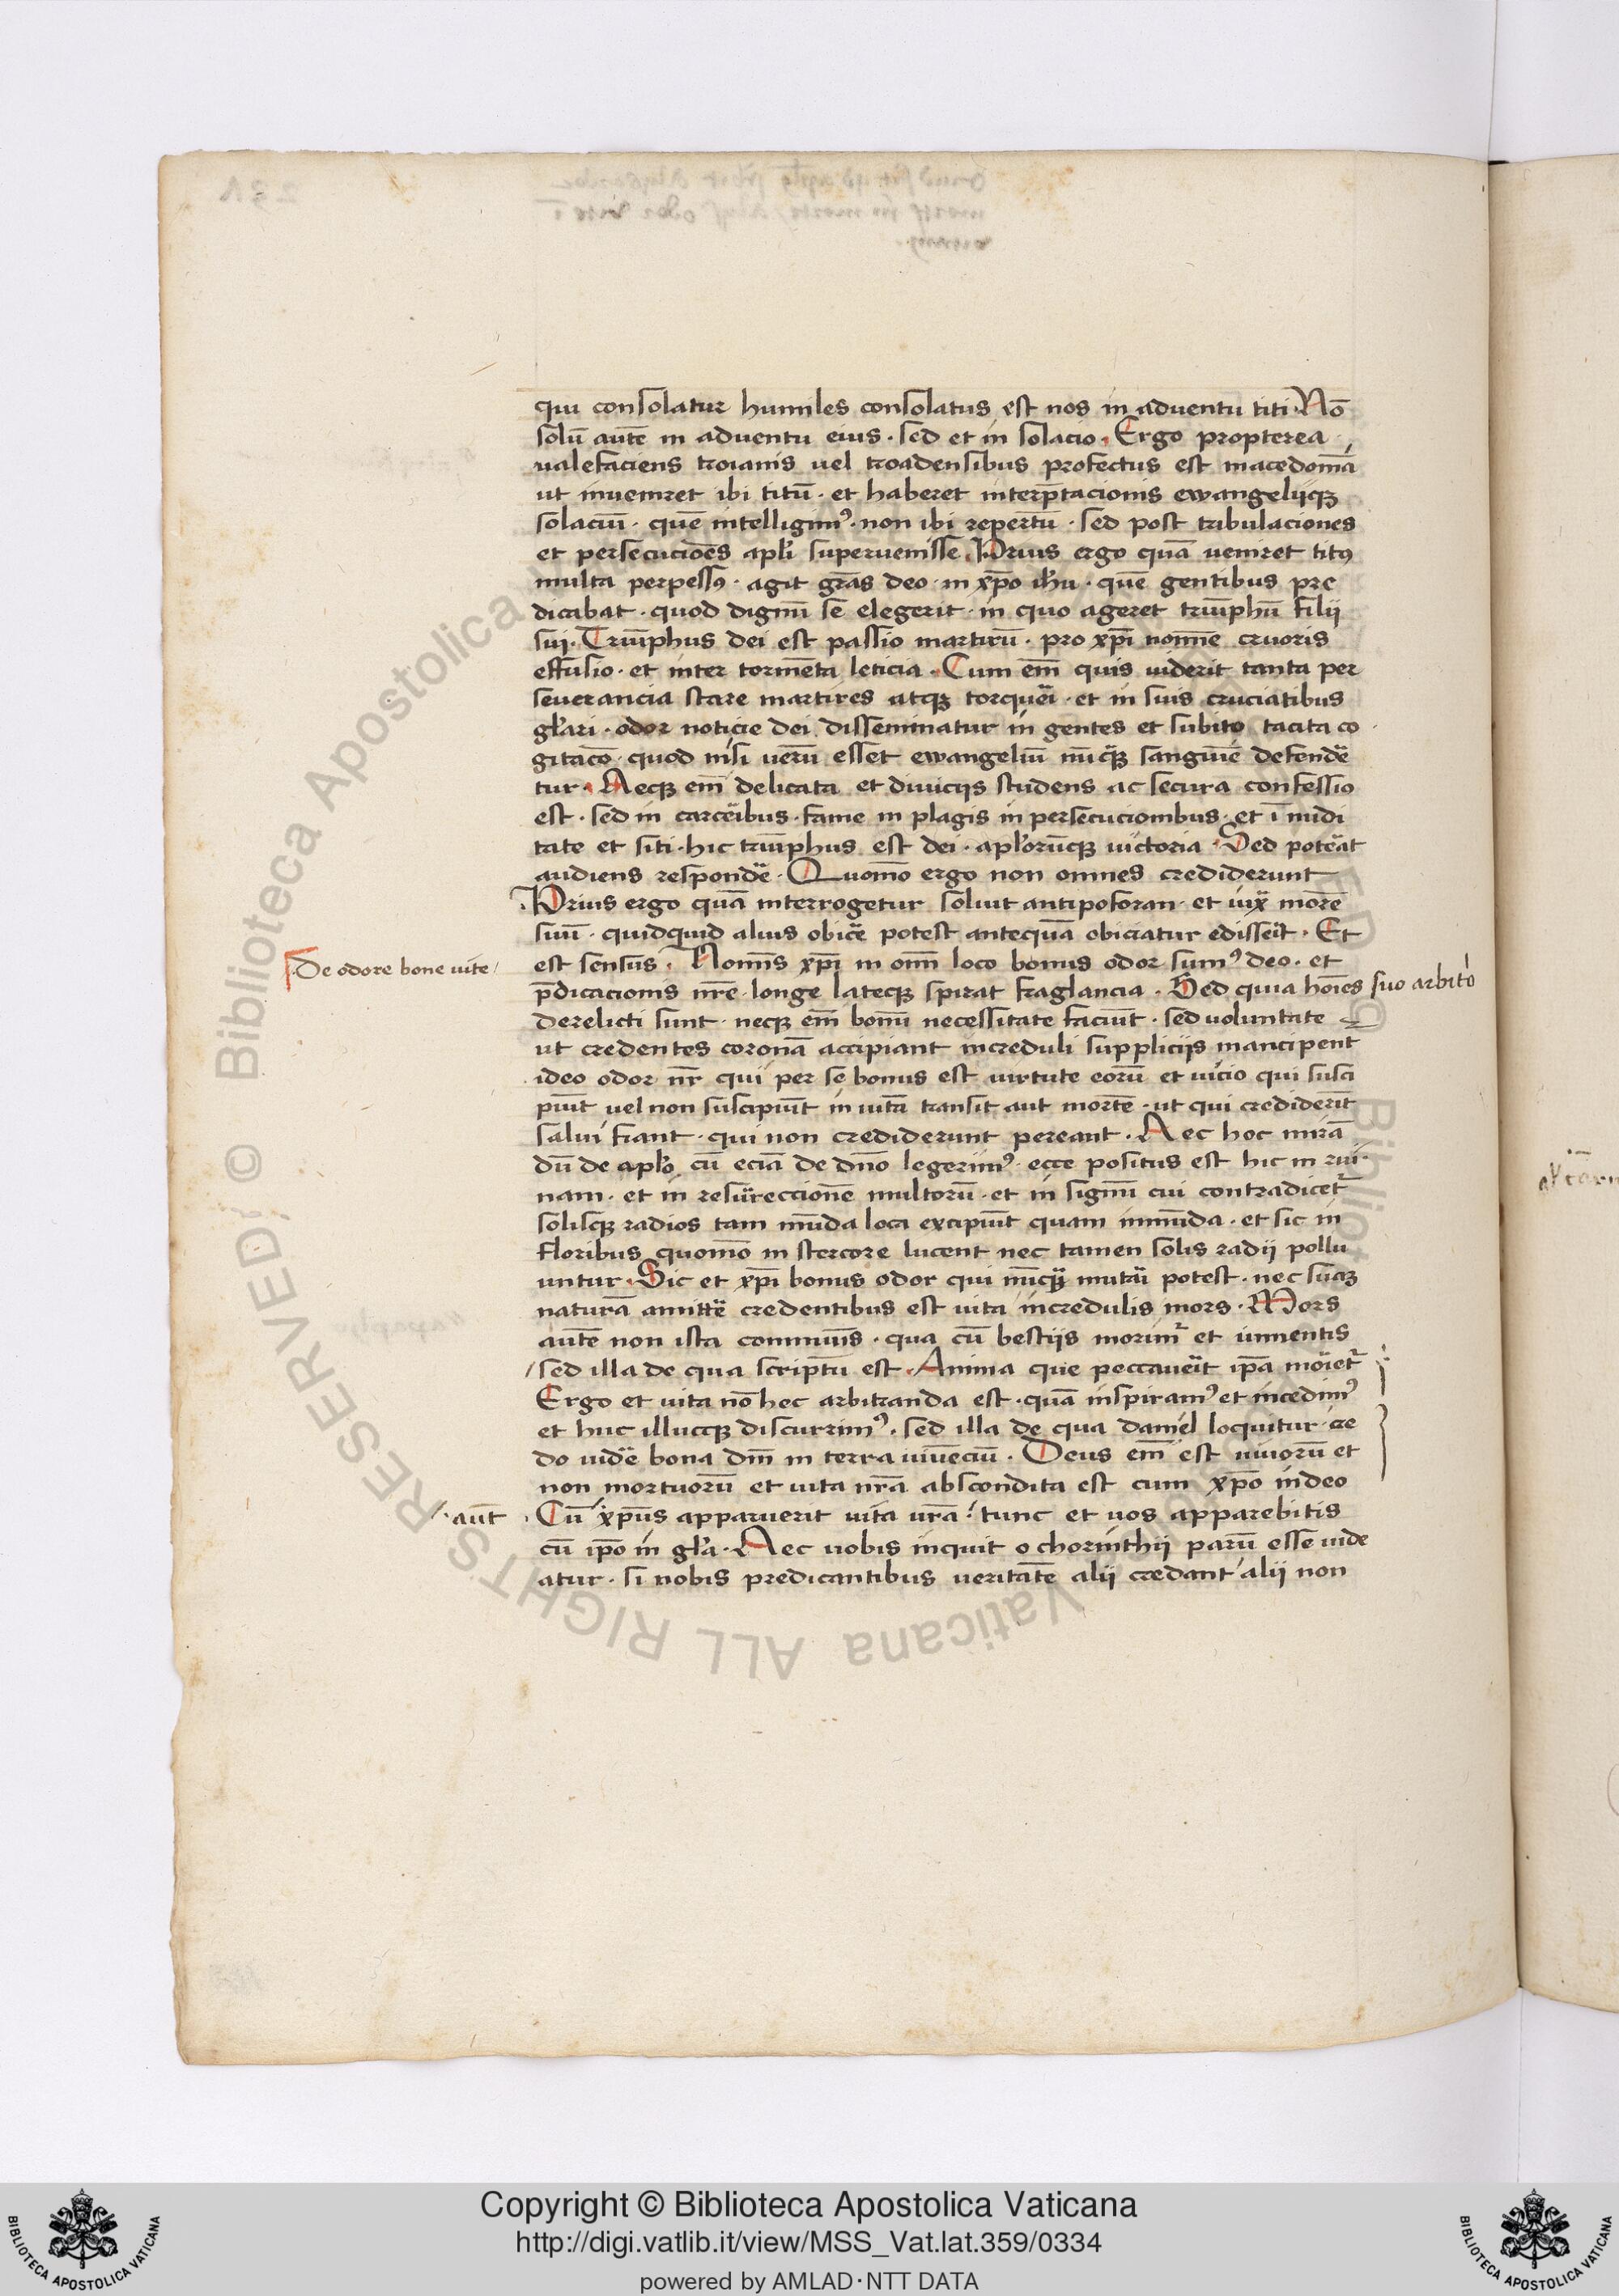 qui consolatur humiles consolatus est nos in adventu titi · Nō
solū autē in adventu eius · sed et in solacio · Ergo propterea
valefaciens troianis vel troadensibus profectus est macedoniā
ut inveniret ibi titū · et haberet interp̄tacionis ewangeliiqꝫ
solaciū · quē intelligimꝰ · non ibi repertū · sed post tribulaciones
et persecucioēs apl̄i supervenisse · Prius ergo quā veniret titꝰ
multa perpessꝰ · agit grās deo · in xp̄o ih̄u · quē gentibus pre
dicabat · quod dignū se elegerit · in quo ageret triūphū filii
sui · Triūphus dei est passio martirū · pro xp̄i noīne cruoris
effusio · et inter tormēta leticia · Cum em̄ quis viderit tanta per
severancia stare martires atqꝫ torqueī · et in suis cruciatibus
gl̄ari · odor noticie dei disseminatur in gentes et subito tacita co
gitacō · quod nisi verū esset ewangeliū nūqꝫ sanguīe defendē
tur · Necqꝫ em̄ delicata et diviciis studens ac secura confessio
est · sed in carceībus · fame in plagis in persecucionibus · et ī nudi
tate et siti · hic triūphus est dei · apl̄orūcqꝫ victoria · Sed poteāt
audiens respondē · Quomō ergo non omnes crediderunt
Prius ergo quā interrogetur solvit antipoforan · et iux̄ morē
suū · quidquid alius obicē potest antequā obiciatur edisseīt · Et
est sensus · Nomīs xp̄i in om̄i loco bonus odor sumꝰ deo · et
p̄dicacionis nr̄e · longe lateqꝫ spirat fraglancia · Sed quia hoīes suo arbitͥo
derelicti sunt · neqꝫ em̄ bonū necessitate faciūt · sed voluntate
ut credentes coronā accipiant increduli suppliciis mancipent
ideo odor nr̄ qui per se bonus est virtute eorū et vicio qui susci
piūt vel non suscipiūt in vitā transit aut mortē · ut qui crediderīt
salvi fiant · qui non crediderunt pereant · Nec hoc mirā
dū de apl̄o cū eciā de dn̄o legerimꝰ · ecce positus est hic in rui
nam · et in resūreccionē multorū · et in signū cui contradicetᷣ
solisqꝫ radios tam mūda loca excipiūt quam inmūda · et sic in
floribus quomō in stercore lucent nec tamen solis radii pollu
untur · Sic et xp̄i bonus odor qui nūcqꝫ mutaī potest · nec suaꝫ
naturā amittē credentibus est vita incredulis mors · Mors
autē non ista communīs · qua cū bestiis morimᷣ et iumentis
sed illa de qua scriptū est · Anima que peccaveīt ip̄a moīetᷣ
Ergo et vita nō hec arbitranda est · quā inspiramꝰ et incedimꝰ
et huc illucqꝫ discurrimꝰ · sed illa de qua daniel loquitur cre
do vidē bona dn̄i in terra viveciū · Deus em̄ est vivorū et
non mortuorū et vita nr̄a abscondita est cum xp̄o in deo
Cū xp̄us apparuerit vita vr̄a · tunc et vos apparebitis
cū ip̄o in gl̄a · Nec vobis inquit o chorinthii parū esse vide
atur · si nobis predicantibus veritatē alii credant alii non
De odore bone vite
aūt
Copyright © Biblioteca Apostolica Vaticana
http://digi.vatlib.it/view/MSS_Vat.lat.359/0334
powered by AMLAD·NTT DATA
BIBLIOTECA APOSTOLICA VATICANA
BIBLIOTECA APOSTOLICA VATICANA